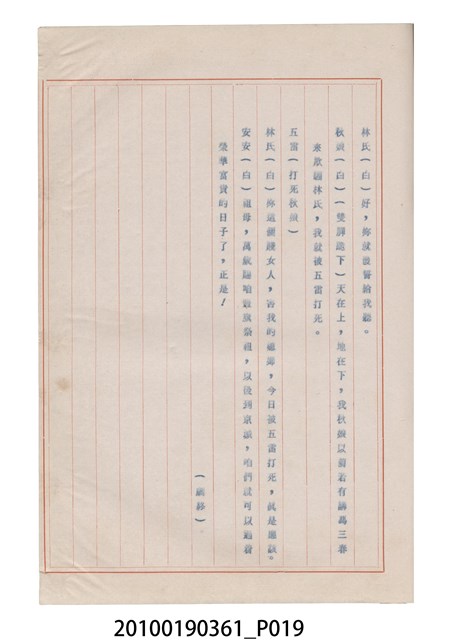 林氏(白)好,妳就發誓給我聽。
秋娘(白)(雙譁跪下)天在上,地在下,我秋娘以前若有講為三春
來欺騙林氏,我就被五雷打死。
五雷(打死秋娘)
林氏(白)妳這個賤女人,害我的,今日被五雷打死,真是應該。
安安(白)祖母,以後到京城,咱們就可以過着
榮華富貴的日子了,正是!
20100190361_P019